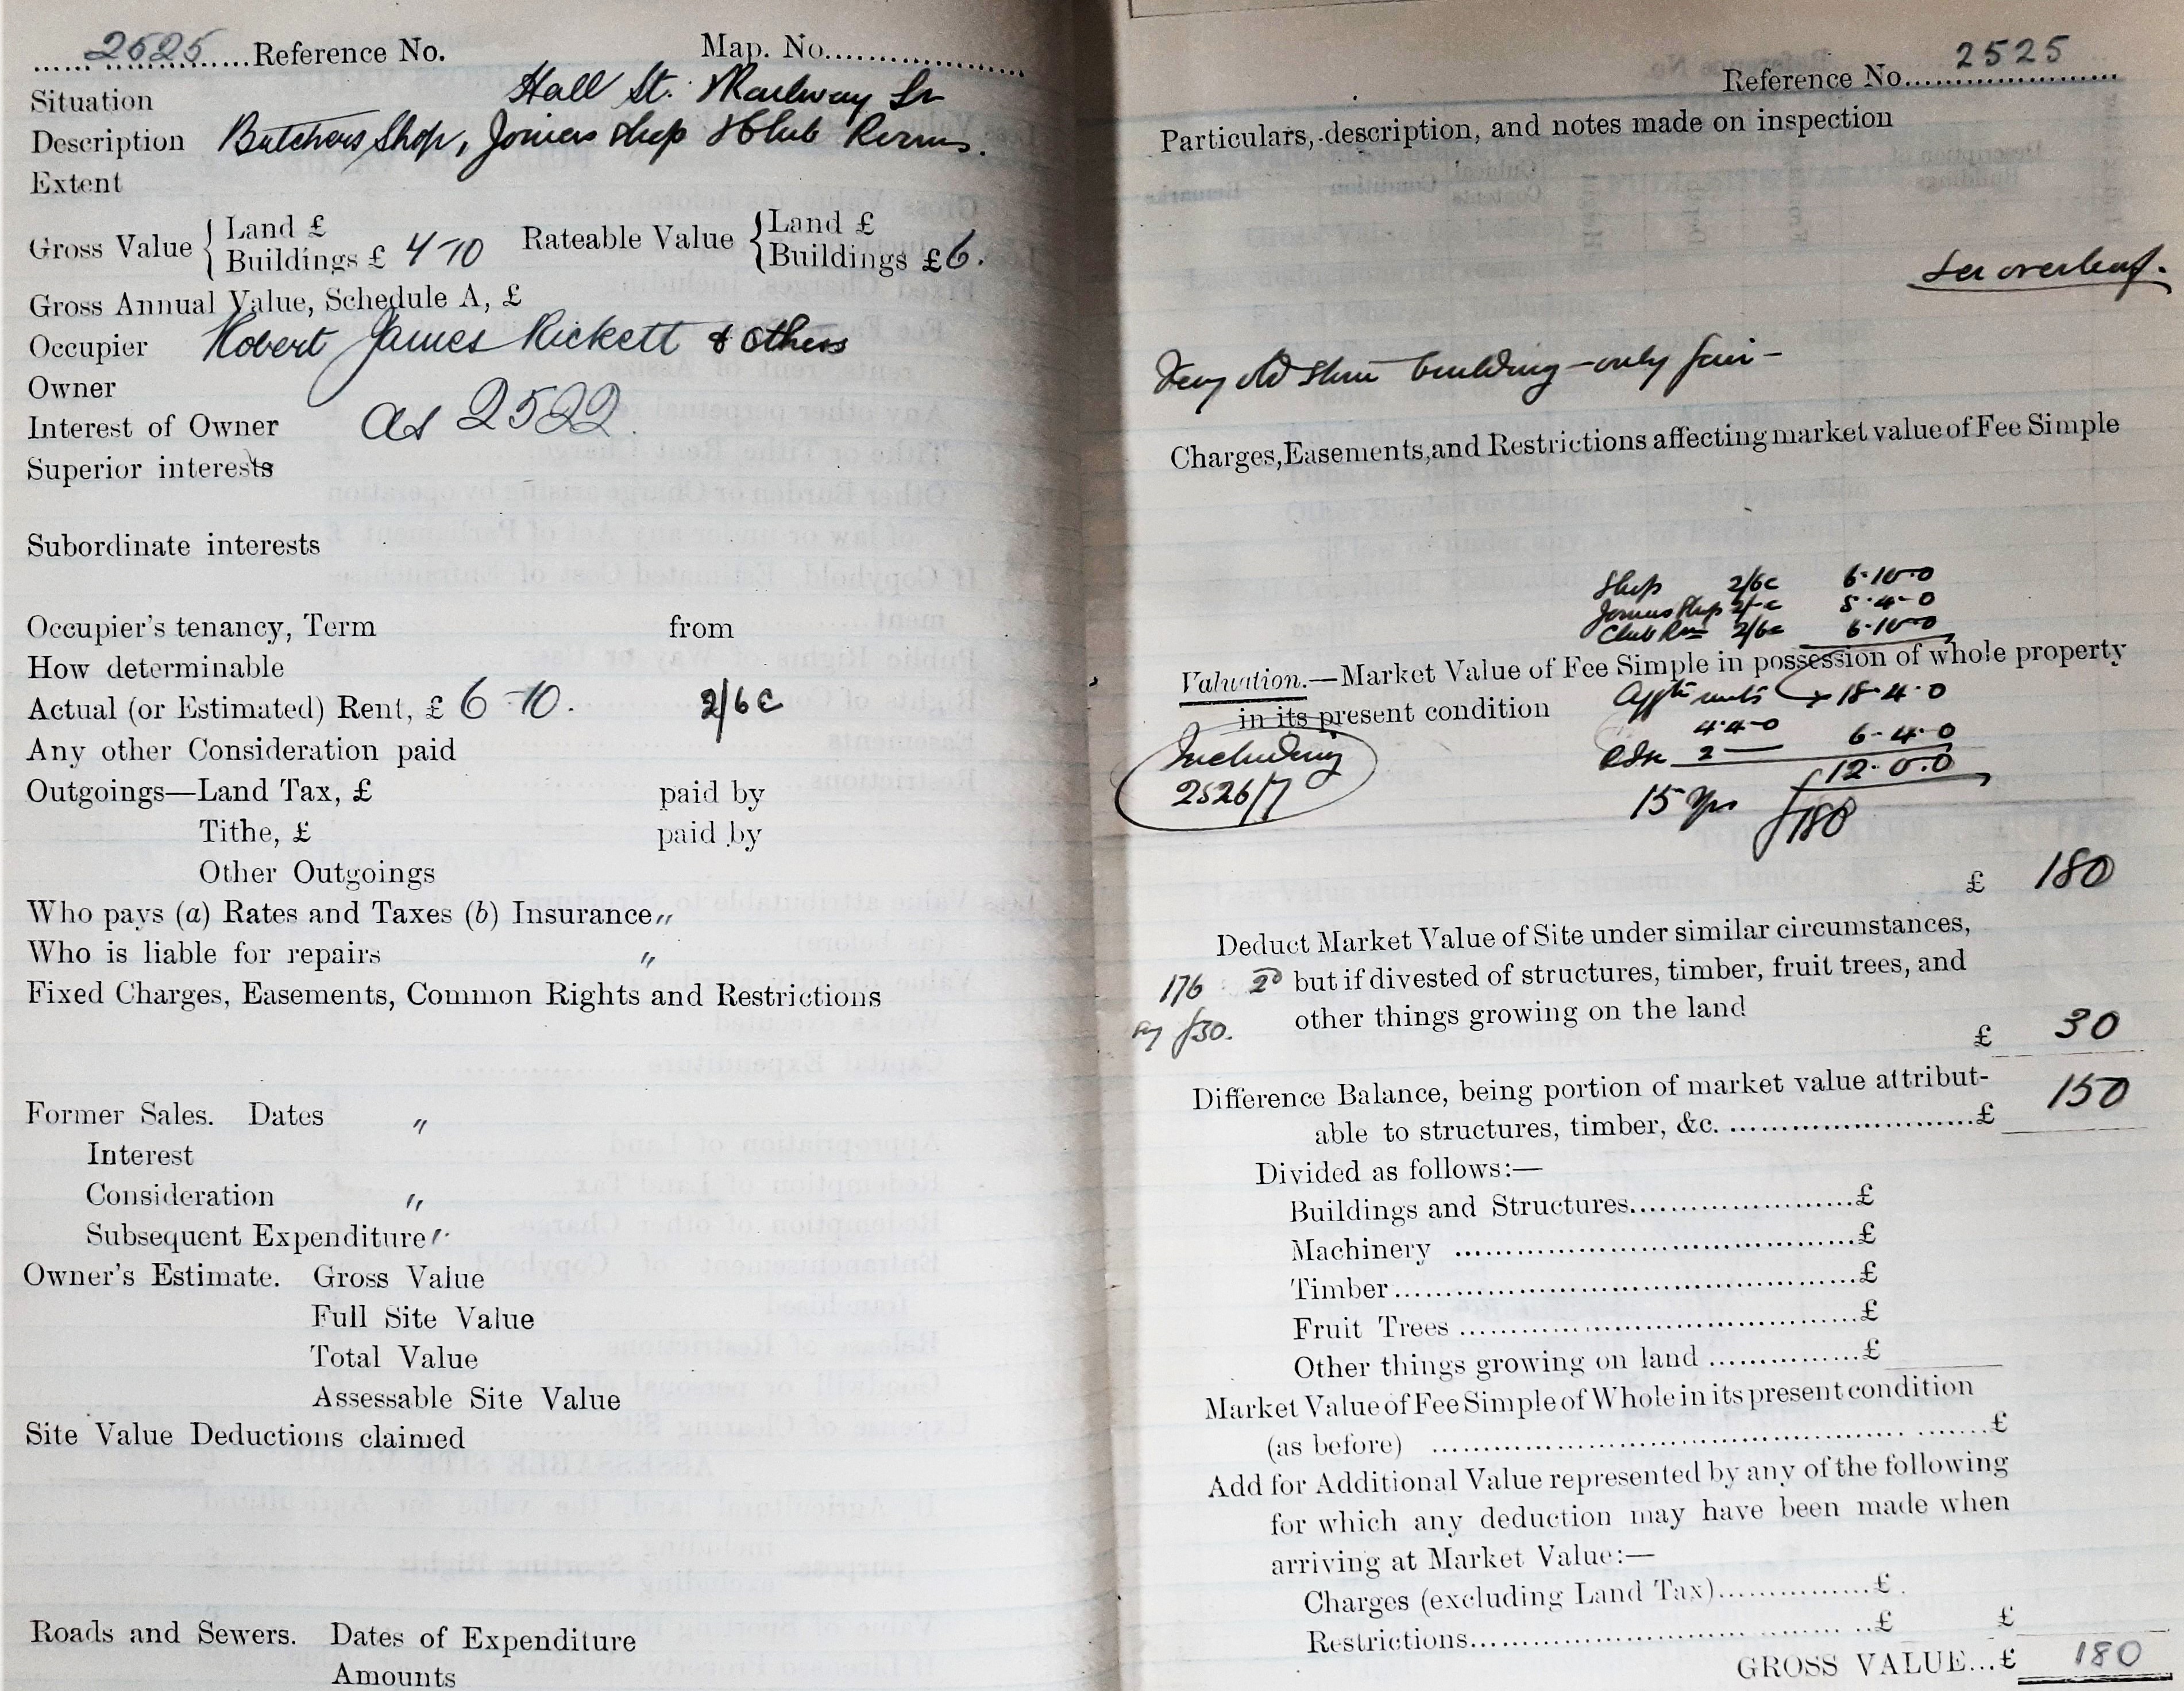 2525 Reference No. Map. No.
Situation Hall St. Railway St
Description Butchers Shop, Joiners Shop & Club Rooms.
Extent
Gross Value { Land £ Rateable Value { Land £
Buildings £ 4-10 Buildings £6.
Gross Annual Value, Schedule A, £
Occupier Robert James Rickett & Others
Owner
Interest of Owner as 2522.
Superior interests
Subordinate interests
Occupier's tenancy, Term from
How determinable
Actual (or Estimated) Rent, £ 6-10. 2/6
Any other Consideration paid
Outgoings—Land Tax, £ paid by
Tithe, £ paid by
Other Outgoings
Who pays (a) Rates and Taxes (b) Insurance "
Who is liable for repairs "
Fixed Charges, Easements, Common Rights and Restrictions
Former Sales. Dates "
Interest
Consideration "
Subsequent Expenditure "
Owner's Estimate. Gross Value
Full Site Value
Total Value
Assessable Site Value
Site Value Deductions claimed
Roads and Sewers. Dates of Expenditure
Amounts
Reference No. 2525
Particulars, description, and notes made on inspection
See overleaf.
Very old stone building - only fair -
Charges, Easements, and Restrictions affecting market value of Fee Simple
Shop 2/6 6-10-0
Joiners Shop 2/- 5-4-0
Club Rm 2/6 6-10-0
Valuation.—Market Value of Fee Simple in possession of whole property
in its present condition
18-4-0
4-4-0 6-4-0
2 12-0-0
Including
2526/7
15 yrs £180
£ 180
Deduct Market Value of Site under similar circumstances,
but if divested of structures, timber, fruit trees, and
other things growing on the land
176
say £30.
£ 30
Difference Balance, being portion of market value attribut-
able to structures, timber, &c. £ 150
Divided as follows:—
Buildings and Structures £
Machinery £
Timber £
Fruit Trees £
Other things growing on land £
Market Value of Fee Simple of Whole in its present condition
(as before) £
Add for Additional Value represented by any of the following
for which any deduction may have been made when
arriving at Market Value:—
Charges (excluding Land Tax) £
Restrictions £ £
GROSS VALUE...£ 180